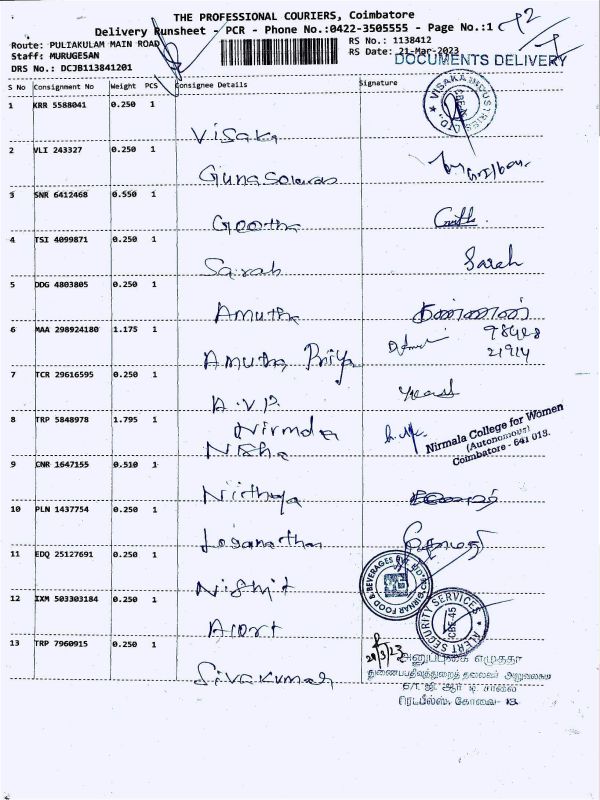 THE PROFESSIONAL COURIERS, Coimbatore
Delivery Runsheet - PCR - Phone No.:0422-3505555 - Page No.:1
Route: PULIAKULAM MAIN ROAD
RS No.: 1138412
Staff: MURUGESAN
RS Date: 21-Mar-2023
DRS No.: DCJB113841201
DOCUMENTS DELIVERY
S No Consignment No Weight PCS Consignee Details Signature
1 KRR 5588041 0.250 1
Visaka
VISAKA INDUSTRIES LTD.
2 VLI 243327 0.250 1
3 SNR 6412468 0.550 1
Geetha
4 TSI 4099871 0.250 1
Sarah Sarah
5 DDG 4803805 0.250 1
Amutha
6 MAA 298924180 1.175 1
Amutha Priya
7 TCR 29616595 0.250 1
A.V.P.
8 TRP 5848978 1.795 1
Nirmala
Nisha
Nirmala College for Women
(Autonomous)
Coimbatore - 641 018.
9 CNR 1647155 0.510 1
Nithya
10 PLN 1437754 0.250 1
Loganathan
11 EDQ 25127691 0.250 1
Nishit
12 IXM 503303184 0.250 1
Alert
ALERT SECURITY SERVICES
CBE-45
13 TRP 7960915 0.250 1
Sivakumar
21/3/23